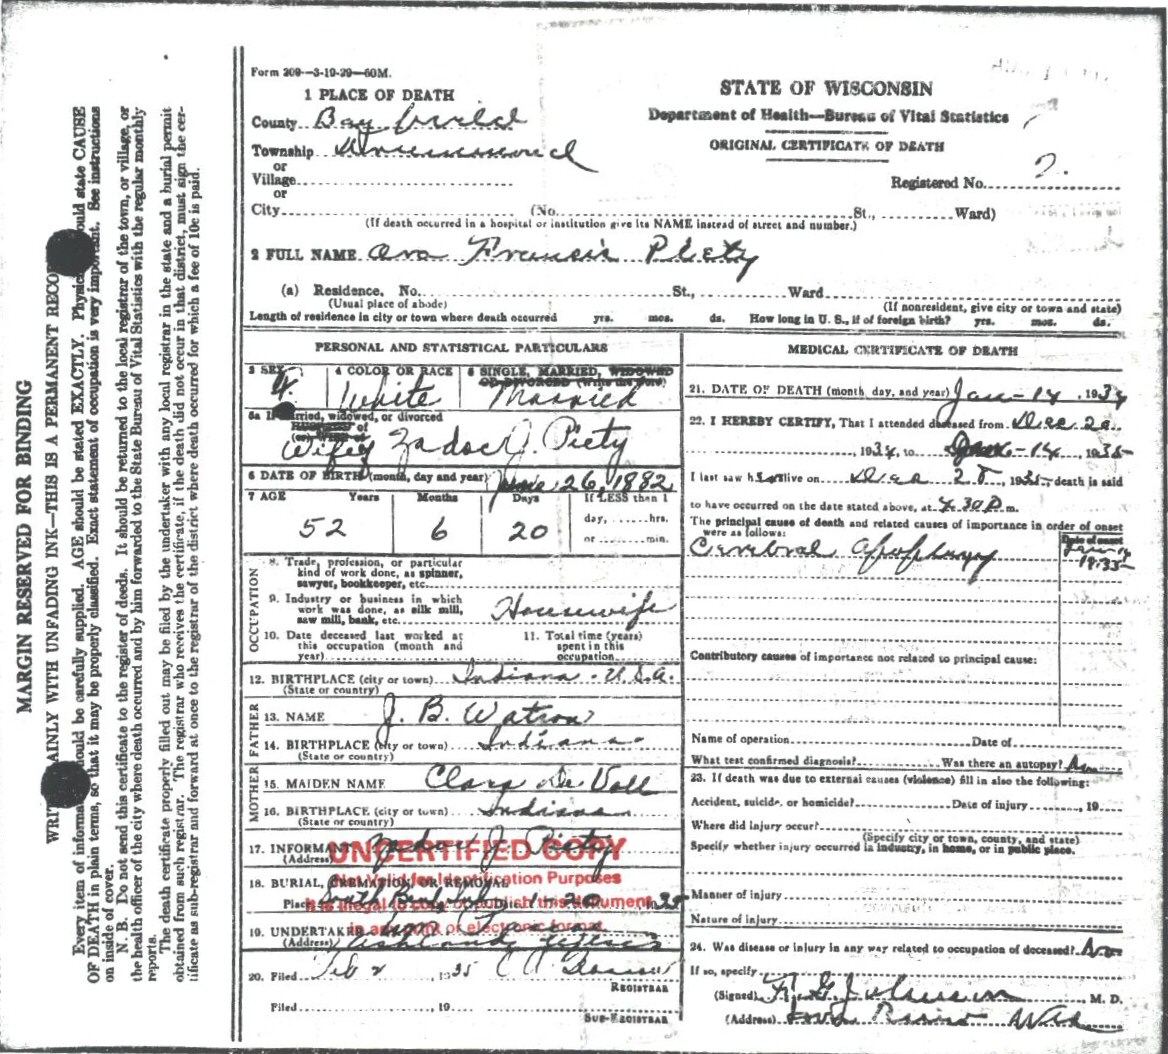 MARGIN RESERVED FOR BINDING
WRIT AINLY WITH UNFADING INK—THIS IS A PERMANENT RECOR
Every item of informa ould be carefully supplied. AGE should be stated EXACTLY. Physic ould state CAUSE
OF DEATH in plain terms, so that it may be properly classified. Exact statement of occupation is very important. See instructions
on inside of cover.
N. B. Do not send this certificate to the register of deeds. It should be returned to the local registrar of the town, or village, or
the health officer of the city where death occurred and by him forwarded to the State Bureau of Vital Statistics with the regular monthly
reports.
The death certificate properly filled out may be filed by the undertaker with any local registrar in the state and a burial permit
obtained from such registrar. The registrar who receives the certificate, if the death did not occur in that district, must sign the cer-
tificate as sub-registrar and forward at once to the registrar of the district where death occurred for which a fee of 10c is paid.
Form 209—3-19-29—60M.
STATE OF WISCONSIN
Department of Health—Bureau of Vital Statistics
ORIGINAL CERTIFICATE OF DEATH
Registered No. 2.
1 PLACE OF DEATH
County Bayfield
Township Drummond
or
Village
or
City (No. St., Ward)
(If death occurred in a hospital or institution give its NAME instead of street and number.)
2 FULL NAME Ora Francis Piety
(a) Residence, No. St., Ward
(Usual place of abode) (If nonresident, give city or town and state)
Length of residence in city or town where death occurred yrs. mos. ds. How long in U. S., if of foreign birth? yrs. mos. ds.
PERSONAL AND STATISTICAL PARTICULARS
3 SEX 4 COLOR OR RACE White 5 SINGLE, MARRIED, WIDOWED OR DIVORCED (Write the word) Married
5a If married, widowed, or divorced
Wife Zadoc J. Piety
6 DATE OF BIRTH (month, day and year) June 26, 1882
7 AGE Years Months Days If LESS than 1
52 6 20 day, hrs.
or min.
OCCUPATION
8. Trade, profession, or particular
kind of work done, as spinner,
sawyer, bookkeeper, etc.
9. Industry or business in which
work was done, as silk mill,
saw mill, bank, etc. Housewife
10. Date deceased last worked at
this occupation (month and
year)
11. Total time (years)
spent in this
occupation
12. BIRTHPLACE (city or town) Indiana - U.S.A.
(State or country)
FATHER
13. NAME J. B. Watson
14. BIRTHPLACE (city or town) Indiana
(State or country)
MOTHER
15. MAIDEN NAME Clara De Voll
16. BIRTHPLACE (city or town) Indiana
(State or country)
17. INFORMANT Zadoc J. Piety
(Address)
UNCERTIFIED COPY
Not Valid for Identification Purposes
It is illegal to copy or publish this document
in any print or electronic format.
18. BURIAL, CREMATION, OR REMOVAL
Place South Bend 1-20 1935
19. UNDERTAKER
(Address) Ashland
20. Filed Feb 2 1935
REGISTRAR
Filed , 19
SUB-REGISTRAR
MEDICAL CERTIFICATE OF DEATH
21. DATE OF DEATH (month, day, and year) Jan - 14 , 193
22. I HEREBY CERTIFY, That I attended deceased from Dec 20
, 1934, to Jan - 14 , 1935
I last saw h alive on Dec 28 , 193 death is said
to have occurred on the date stated above, at 4.30 P m.
The principal cause of death and related causes of importance in order of onset
were as follows: Date of onset
Cerebral Apoplexy Jan 14
1935
Contributory causes of importance not related to principal cause:
Name of operation Date of
What test confirmed diagnosis? Was there an autopsy? No
23. If death was due to external causes (violence) fill in also the following:
Accident, suicide, or homicide? Date of injury , 19
Where did injury occur?
(Specify city or town, county, and state)
Specify whether injury occurred in industry, in home, or in public place.
Manner of injury
Nature of injury
24. Was disease or injury in any way related to occupation of deceased? No
If so, specify
(Signed) Johnson , M. D.
(Address) Iron River Wis